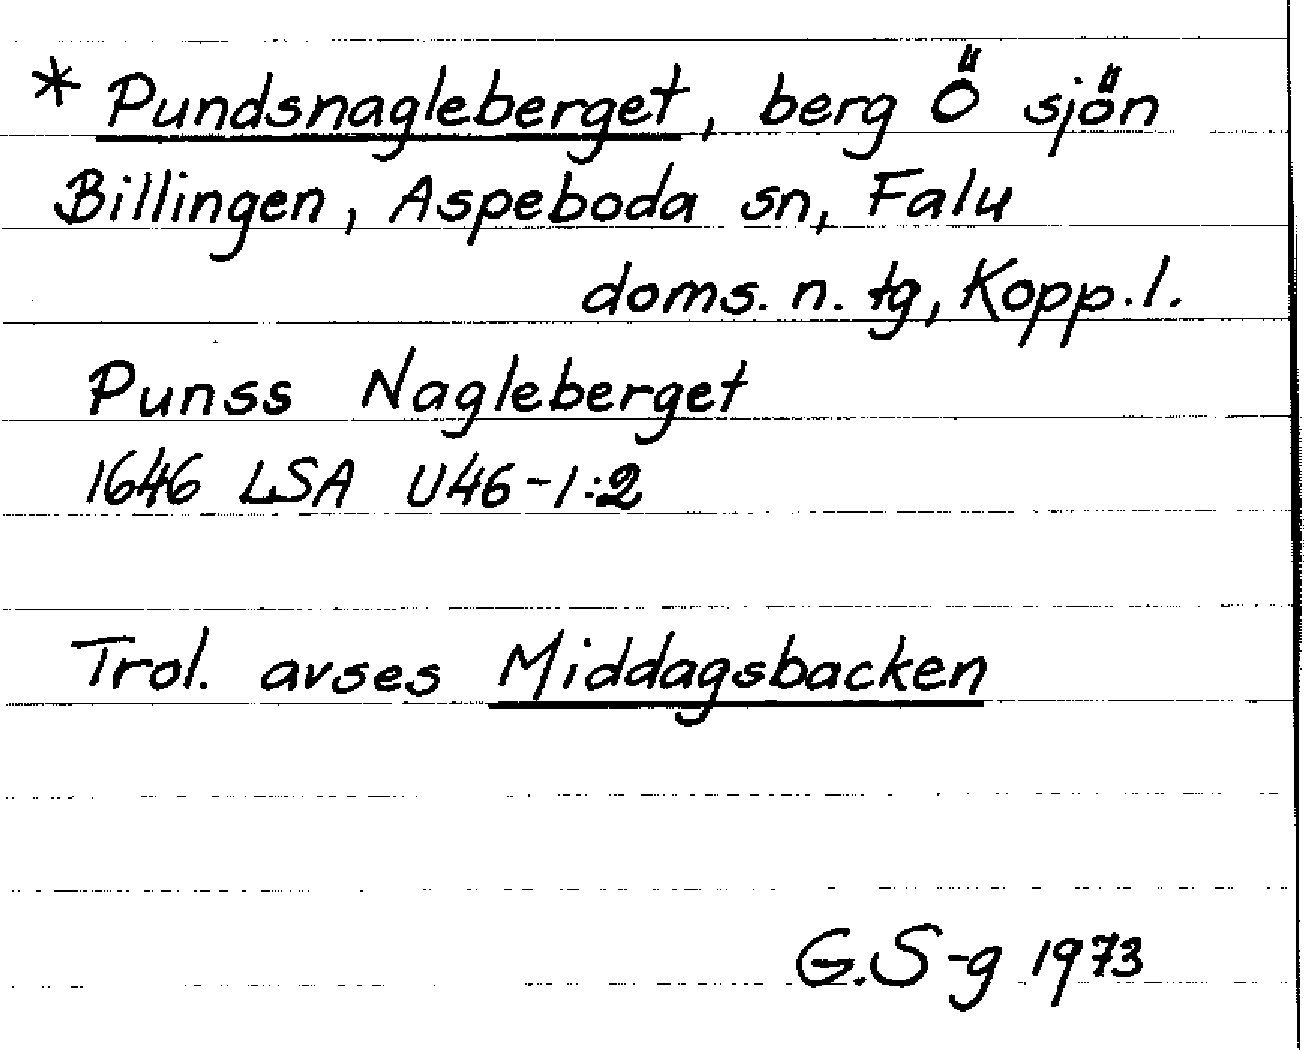 * Pundsnagleberget, berg Ö sjön
Billingen, Aspeboda sn, Falu
doms. n. tg, Kopp. l.
Punss Nagleberget
1646 LSA U46-1:2
Trol. avses Middagsbacken
G.S-g 1973